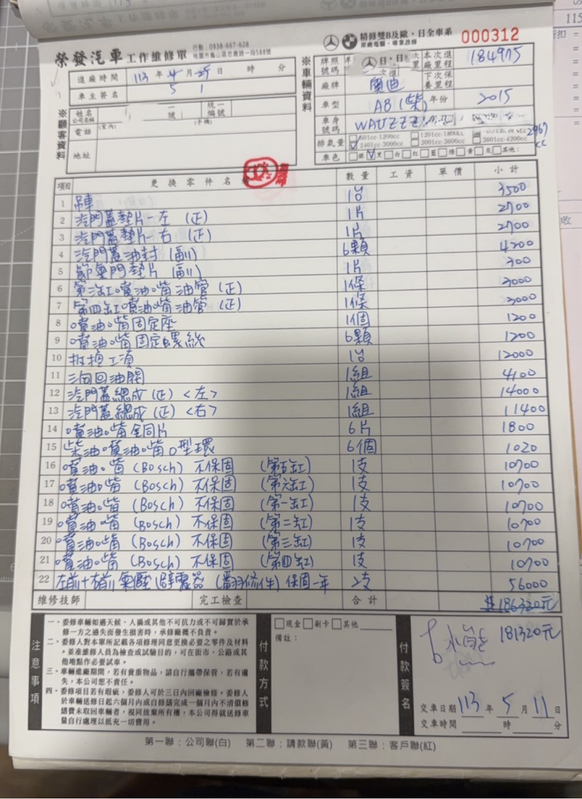 榮發汽車 工作維修單
行動：0938-667-628
精修雙B及歐、日全車系
000312
進廠時間 113 年 4 月 25 日 時 分
車主簽名 5 1
本次進廠里程 184975
廠牌 奧迪
下次保養里程
※顧客資料
姓名
公司名稱
統一編號
電話
(室內) (手機)
地址
※車輛資料
車型 A8 (柴) 年份 2015
車身號碼 WAUZZZ
排氣量 2967 cc
車色
項目 更換零件名 數量 工資 單價 小計
1 吊車 1台 3500
2 汽門蓋墊片-左 (正) 1片 2700
3 汽門蓋墊片-右 (正) 1片 2700
4 汽門蓋油封 (副) 6顆 4200
5 節氣門墊片 (副) 1片 300
6 第六缸噴油嘴油管 (正) 1條 3000
7 第四缸噴油嘴油管 (正) 1條 3000
8 噴油嘴固定座 1個 1200
9 噴油嘴固定螺絲 6顆 1200
10 拆換工項 1台 12000
11 三向回油閥 1組 4100
12 汽門蓋總成(正) <左> 1組 14000
13 汽門蓋總成(正) <右> 1組 11400
14 噴油嘴銅片 6片 1800
15 柴油噴油嘴O型環 6個 1020
16 噴油嘴 (Bosch) 不保固 (第五缸) 1支 10700
17 噴油嘴 (Bosch) 不保固 (第六缸) 1支 10700
18 噴油嘴 (Bosch) 不保固 (第一缸) 1支 10700
19 噴油嘴 (Bosch) 不保固 (第二缸) 1支 10700
20 噴油嘴 (Bosch) 不保固 (第三缸) 1支 10700
21 噴油嘴 (Bosch) 不保固 (第四缸) 1支 10700
22 左前+右前 氣壓避震器 (翻修件) 保固一年 2支 56000
維修技師 完工檢查 合計 $186320元
注意事項
一、委修車輛如遇天候、人禍或其他不可抗力或不可歸責於承修一方之過失而發生損害時，承修廠概不負責。
二、委修人對本單所記載各項修理同意更換必要之零件及材料，並准承修人員為檢查或試驗目的，可在街市、公路或其他地點作必要試車。
三、車輛進廠期間，若有貴重物品，請自行攜帶保管，若有遺失，本公司恕不責任。
四、委修項目若有瑕疵，委修人可於三日內回廠檢修。委修人
付款方式
現金 刷卡 其他
備註：
付款簽名
181320元
交車日期 113 年 5 月 11 日
交車時間 時 分
第一聯：公司聯(白) 第二聯：請款聯(黃) 第三聯：客戶聯(紅)